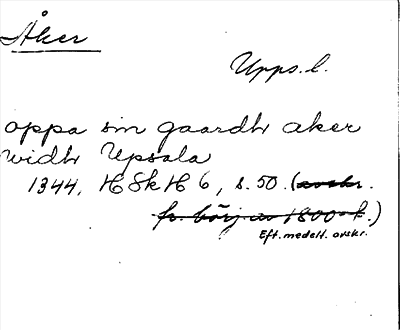 Åker
Upps. l.
oppa sin gaardh aker
widh Upsala
1344, HSkH 6, s. 50. (avskr.
fr. börj. av 1800-t.)
Eft. medelt. avskr.